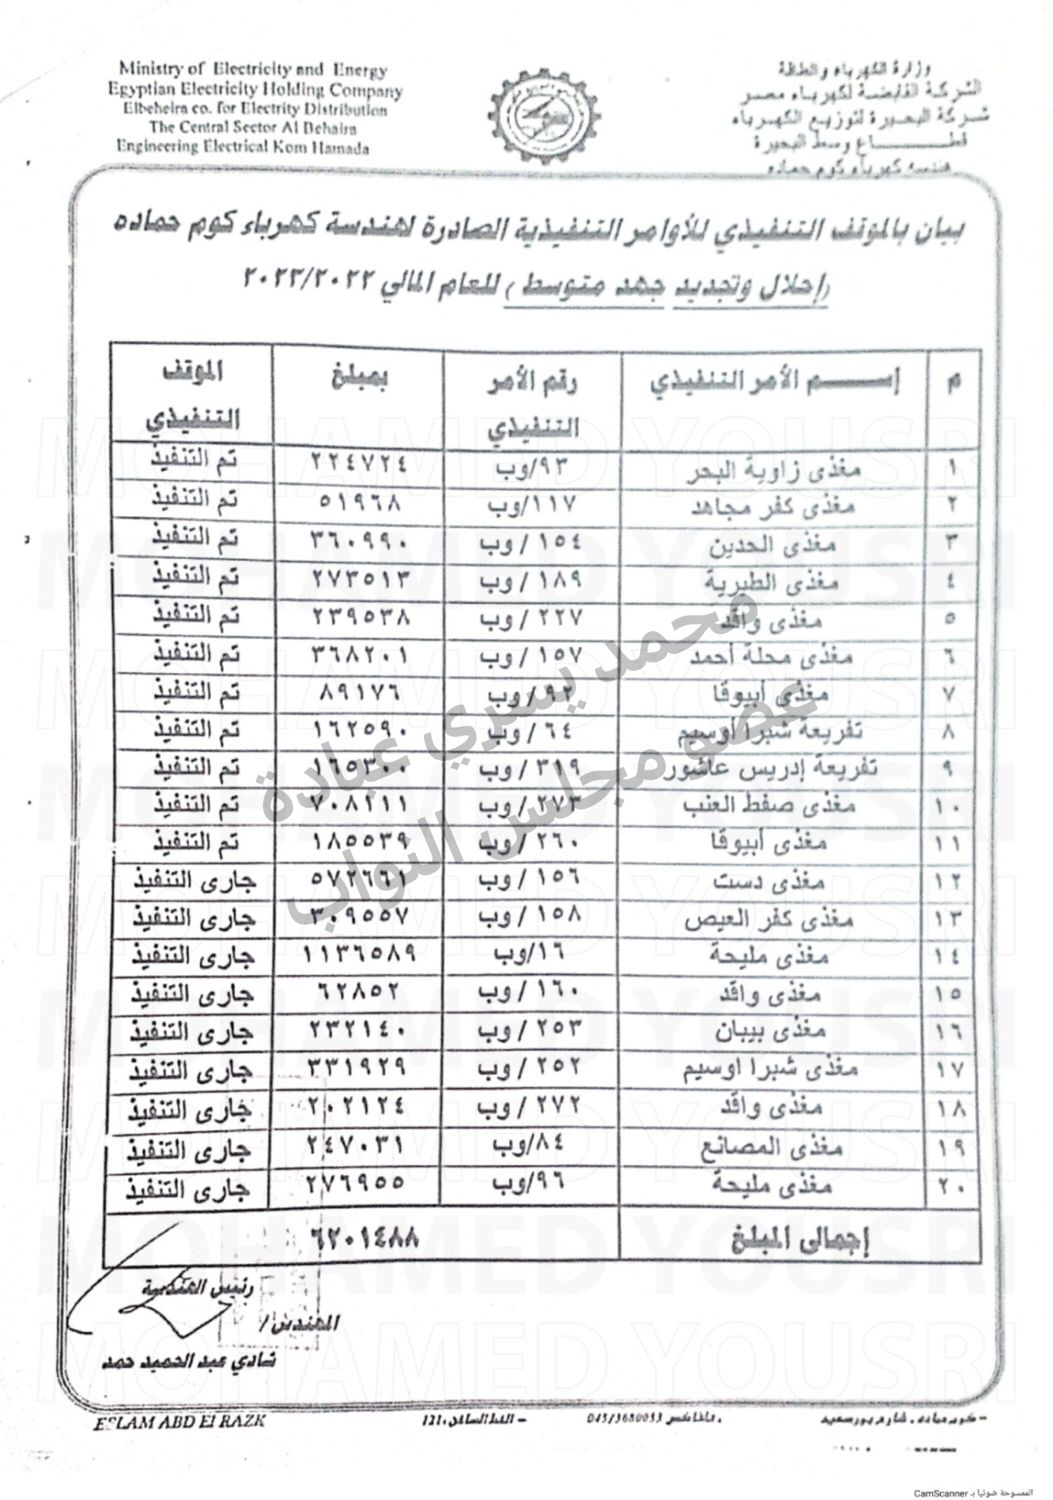 Ministry of Electricity and Energy
Egyptian Electricity Holding Company
Elbeheira co. for Electrity Distribution
The Central Sector Al Behaira
Engineering Electrical Kom Hamada
وزارة الكهرباء والطاقة
الشركة القابضة لكهرباء مصر
شركة البحيرة لتوزيع الكهرباء
قطـــــــاع وسط البحيرة
هندسة كهرباء كوم حماده
بيان بالموقف التنفيذي للأوامر التنفيذية الصادرة لهندسة كهرباء كوم حماده
(إحلال وتجديد جهد متوسط) للعام المالي ٢٠٢٣/٢٠٢٢
م إســـــم الأمر التنفيذي رقم الأمر التنفيذي بمبلغ الموقف التنفيذي
١ مغذى زاوية البحر ٩٣/وب ٢٢٤٧٢٤ تم التنفيذ
٢ مغذى كفر مجاهد ١١٧/وب ٥١٩٦٨ تم التنفيذ
٣ مغذى الحدين ١٥٤ / وب ٣٦٠٩٩٠ تم التنفيذ
٤ مغذى الطيرية ١٨٩ / وب ٢٧٣٥١٣ تم التنفيذ
٥ مغذى واقد ٢٢٧ / وب ٢٣٩٥٣٨ تم التنفيذ
٦ مغذى محلة أحمد ١٥٧ / وب ٣٦٨٢٠١ تم التنفيذ
٧ مغذى أبيوقا ٩٢/وب ٨٩١٧٦ تم التنفيذ
٨ تفريعة شبرا أوسيم ٦٤ / وب ١٦٢٥٩٠ تم التنفيذ
٩ تفريعة إدريس عاشور ٣١٩ / وب ١٦٥٣٠٠ تم التنفيذ
١٠ مغذى صفط العنب ٢٧٣ / وب ٧٠٨٢١١ تم التنفيذ
١١ مغذى أبيوقا ٢٦٠ / وب ١٨٥٥٣٩ تم التنفيذ
١٢ مغذى دست ١٥٦ / وب ٥٧٢٦٦١ جارى التنفيذ
١٣ مغذى كفر العيص ١٥٨ / وب ٣٠٩٥٥٧ جارى التنفيذ
١٤ مغذى مليحة ١٦/وب ١١٣٦٥٨٩ جارى التنفيذ
١٥ مغذى واقد ١٦٠ / وب ٦٢٨٥٢ جارى التنفيذ
١٦ مغذى بيبان ٢٥٣ / وب ٢٣٢١٤٠ جارى التنفيذ
١٧ مغذى شبرا اوسيم ٢٥٢ / وب ٣٣١٩٢٩ جارى التنفيذ
١٨ مغذى واقد ٢٧٢ / وب ٢٠٢١٢٤ جارى التنفيذ
١٩ مغذى المصانع ٨٤/وب ٢٤٧٠٣١ جارى التنفيذ
٢٠ مغذى مليحة ٩٦/وب ٢٧٦٩٥٥ جارى التنفيذ
إجمالى المبلغ ٦٢٠١٤٨٨
محمد يسري عبادة
عضو مجلس النواب
MOHAMED YOUSRI
رئيس الهندسة
المهندس /
شادي عبد الحميد حمد
- كوم حماده ، شارع بورسعيد ، فاكس 045/3680053 - الخط الساخن 121
ESLAM ABD El RAZK
الممسوحة ضوئيا بـ CamScanner